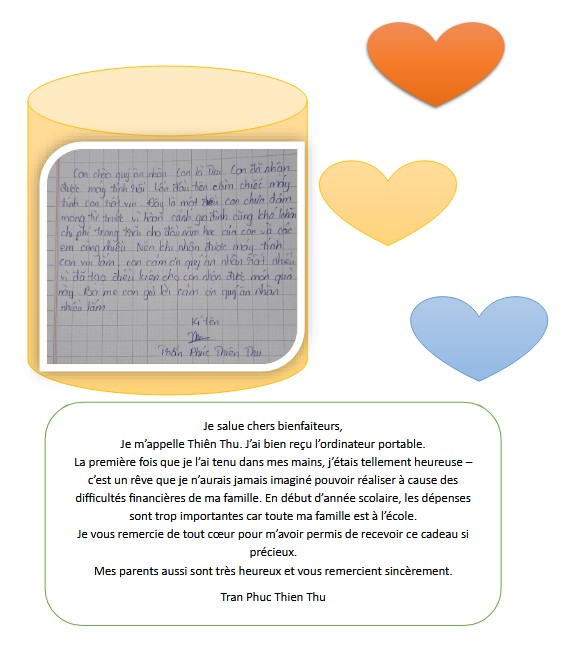 Con chào quý ân nhân. Con là Thu. Con đã nhận
được máy tính rồi. Lần đầu tiên cầm chiếc máy
tính con rất vui. Đây là một điều con chưa dám
mong từ trước vì hoàn cảnh gia đình cũng khó khăn
chi phí trang trải cho đầu năm học của con và các
em cũng nhiều. Nên khi nhận được máy tính
con vui lắm, con cảm ơn quý ân nhân rất nhiều
vì đã tạo điều kiện cho con nhận được món quà
này. Ba mẹ con gửi lời cảm ơn quý ân nhân
nhiều lắm.
Kí tên
Thu
Trần Phúc Thiên Thu
Je salue chers bienfaiteurs,
Je m’appelle Thiên Thu. J’ai bien reçu l’ordinateur portable.
La première fois que je l’ai tenu dans mes mains, j’étais tellement heureuse –
c’est un rêve que je n’aurais jamais imaginé pouvoir réaliser à cause des
difficultés financières de ma famille. En début d’année scolaire, les dépenses
sont trop importantes car toute ma famille est à l’école.
Je vous remercie de tout cœur pour m’avoir permis de recevoir ce cadeau si
précieux.
Mes parents aussi sont très heureux et vous remercient sincèrement.
Tran Phuc Thien Thu